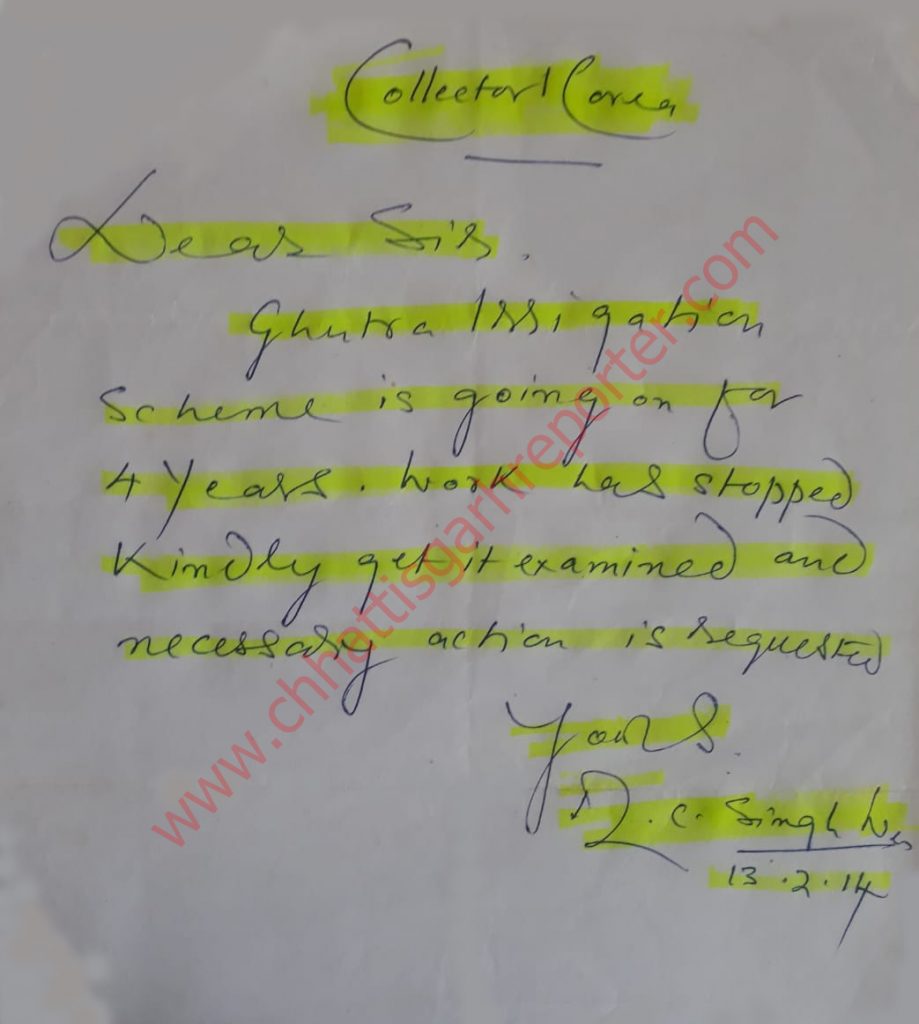 Collector / Corea
Dear Sir.
Ghutra Irrigation
Scheme is going on for
4 years. Work has stopped
Kindly get it examined and
necessary action is requested
Yours
R. C. Singh
13.2.14
www.chhattisgarhreporter.com